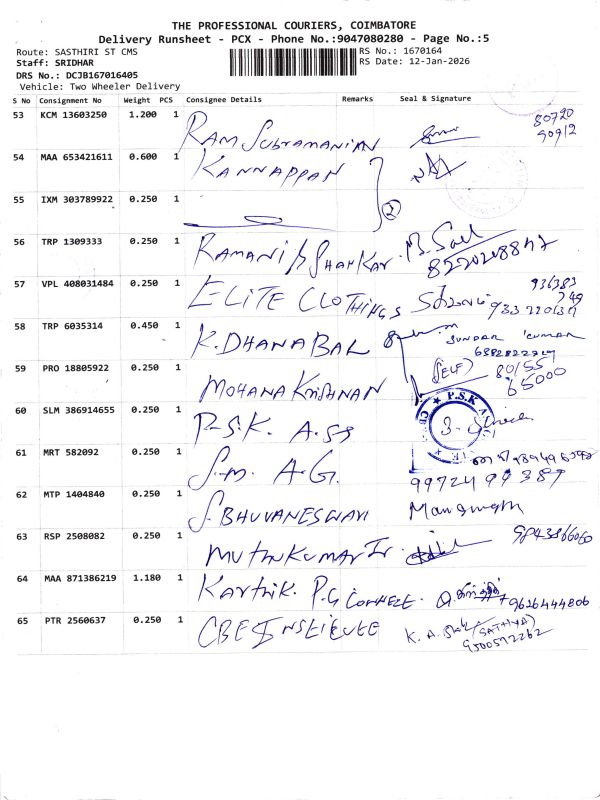 THE PROFESSIONAL COURIERS, COIMBATORE
Delivery Runsheet - PCX - Phone No.:9047080280 - Page No.:5
Route: SASTHIRI ST CMS
RS No.: 1670164
Staff: SRIDHAR
RS Date: 12-Jan-2026
DRS No.: DCJB167016405
Vehicle: Two Wheeler Delivery
S No Consignment No Weight PCS Consignee Details Remarks Seal & Signature
53 KCM 13603250 1.200 1 RAM SUBRAMANIAN 80720
90912
54 MAA 653421611 0.600 1 KANNAPPAN
55 IXM 303789922 0.250 1 2
56 TRP 1309333 0.250 1 RAMANI SHANKAR
57 VPL 408031484 0.250 1 ELITE CLOTHINGS 936383
58 TRP 6035314 0.450 1 K. DHANABAL
SUNDAR KUMAR
(SELF) 80155
59 PRO 18805922 0.250 1 MOHANA KRISHNAN 65000
60 SLM 386914655 0.250 1 P.S.K. ASS P.S.K
61 MRT 582092 0.250 1 S.M. A.G.
62 MTP 1404840 0.250 1 S. BHUVANESWARI
63 RSP 2508082 0.250 1 MUTHUKUMAR Tr.
64 MAA 871386219 1.180 1 KARTHIK. P.G 9626444806
65 PTR 2560637 0.250 1 CBE INSTITUTE K. A. (SATHYA)
9500592262